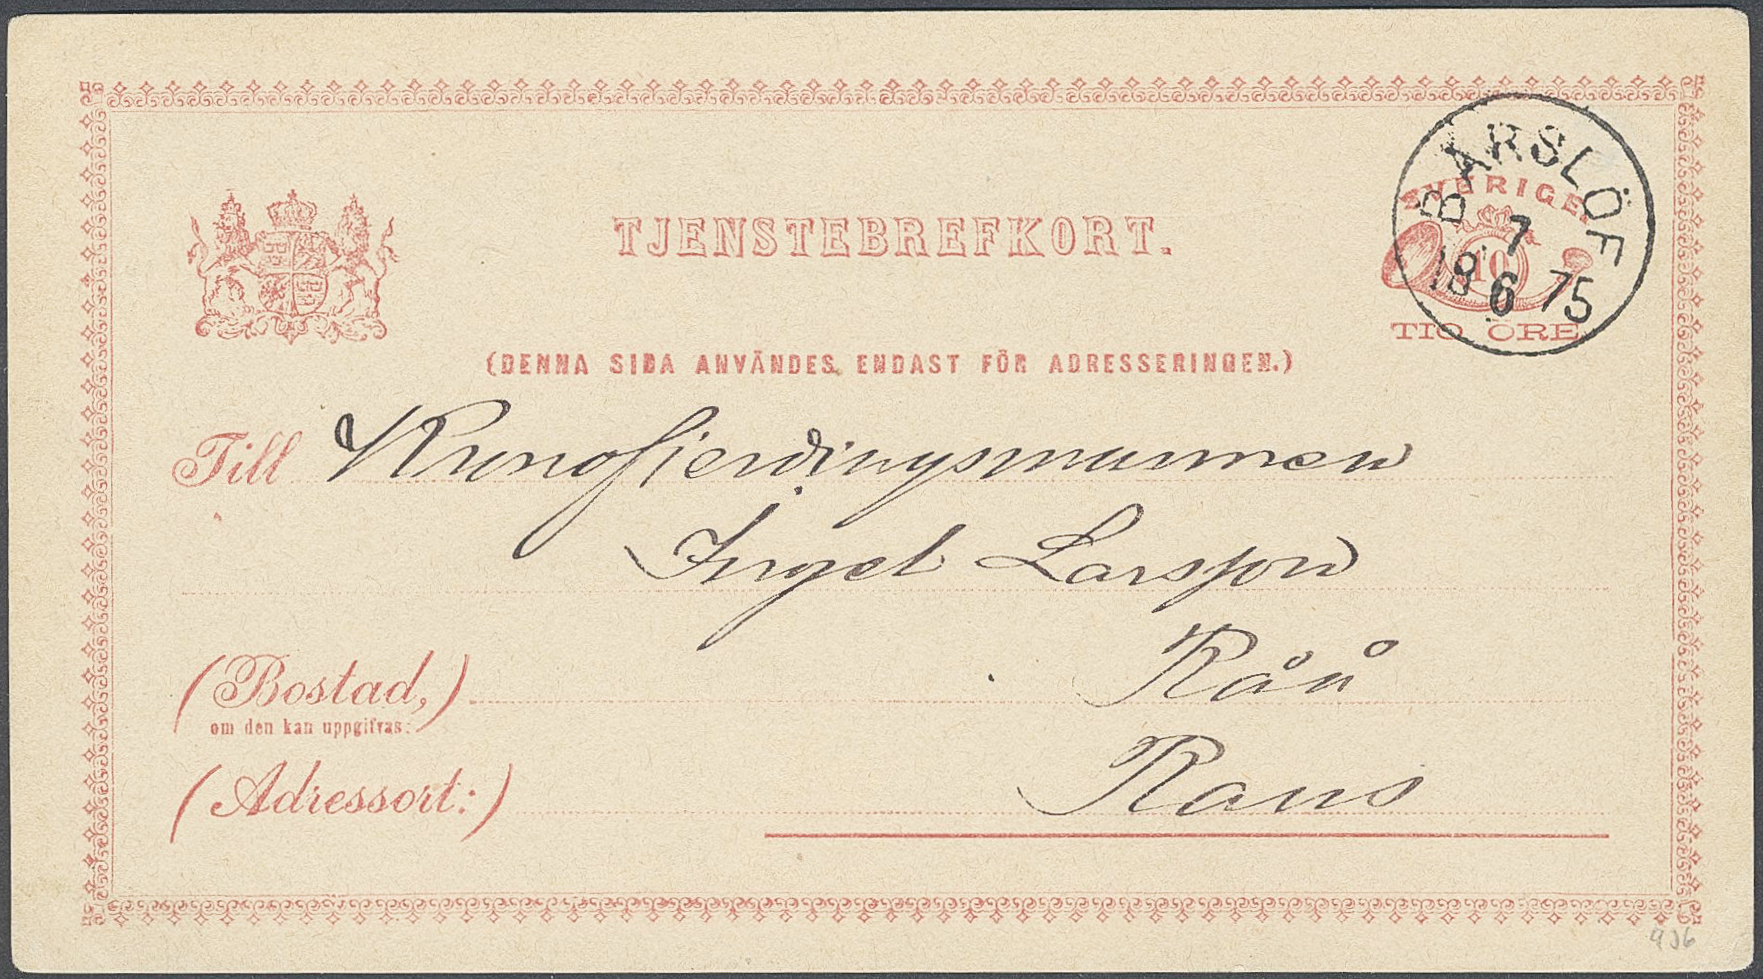 BÅRSLÖF
7
18 6 75
SVERIGE.
10
TIO ÖRE
TJENSTEBREFKORT.
(DENNA SIDA ANVÄNDES ENDAST FÖR ADRESSERINGEN.)
Till Kronofjerdingsmannen
Ingel Larsson
(Bostad,) Råå
om den kan uppgifvas:
(Adressort:) Raus
906